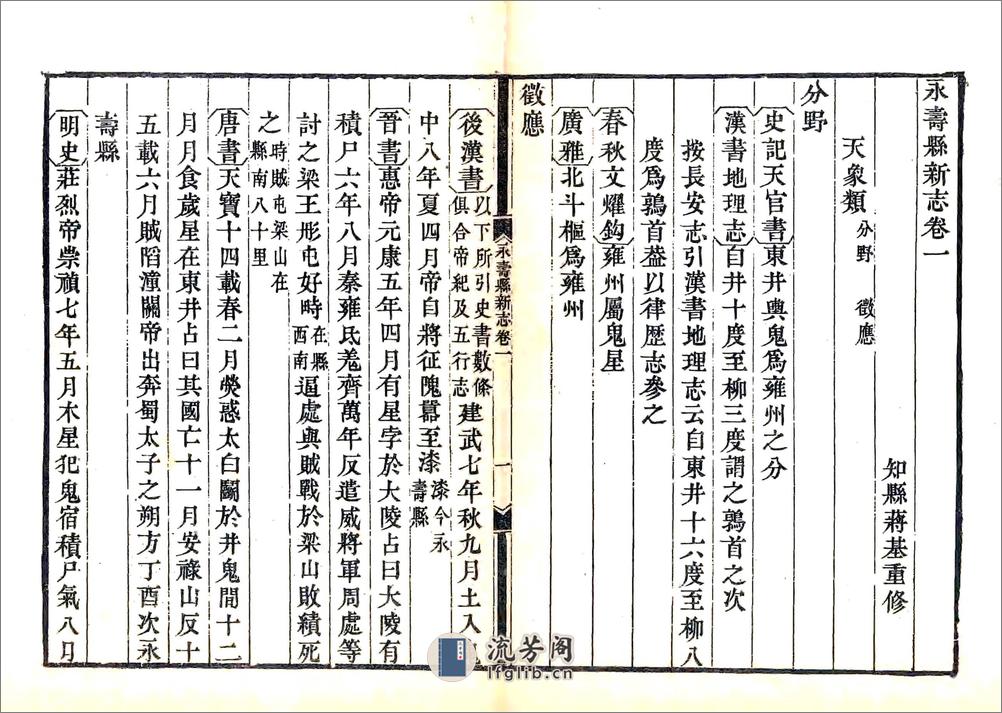 永壽縣新志卷一
知縣蔣基重修
天象類 分野 徵應
分野
史記天官書東井輿鬼爲雍州之分
漢書地理志自井十度至柳三度謂之鶉首之次
按長安志引漢書地理志云自東井十六度至柳八
度爲鶉首葢以律歴志參之
春秋文燿鈎雍州屬鬼星
廣雅北斗樞爲雍州
徵應
永壽縣新志卷一
一
後漢書以下所引史書數條俱合帝紀及五行志建武七年秋九月土入
中八年夏四月帝自將征隗囂至漆漆今永壽縣
晉書惠帝元康五年四月有星孛於大陵占曰大陵有
積尸六年八月秦雍氐羗齊萬年反遣威將軍周處等
討之梁王肜屯好畤在縣西南逼處與賊戰於梁山敗績死
之時賊屯梁山在縣南八十里
唐書天寶十四載春二月熒惑太白鬭於井鬼間十二
月月食歲星在東井占曰其國亡十一月安祿山反十
五載六月賊陷潼關帝出奔蜀太子之朔方丁酉次永
壽縣
明史莊烈帝崇禎七年五月木星犯鬼宿積尸氣八月
流芳阁
lfglib.cn